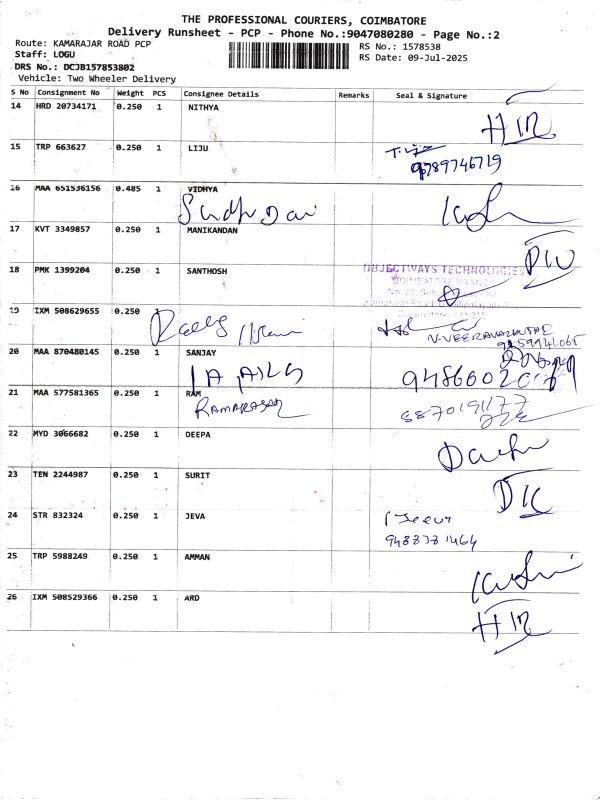 THE PROFESSIONAL COURIERS, COIMBATORE
Delivery Runsheet - PCP - Phone No.:9047080280 - Page No.:2
Route: KAMARAJAR ROAD PCP
Staff: LOGU
DRS No.: DCJB157853802
Vehicle: Two Wheeler Delivery
RS No.: 1578538
RS Date: 09-Jul-2025
S No Consignment No Weight PCS Consignee Details Remarks Seal & Signature
14 HRD 20734171 0.250 1 NITHYA
15 TRP 663627 0.250 1 LIJU
9789746719
16 MAA 651536156 0.485 1 VIDHYA
17 KVT 3349857 0.250 1 MANIKANDAN
18 PMK 1399204 0.250 1 SANTHOSH
OBJECTWAYS TECHNOLOGIES
19 IXM 508629655 0.250
20 MAA 870480145 0.250 1 SANJAY
21 MAA 577581365 0.250 1 RAM
22 MYD 3066682 0.250 1 DEEPA
23 TEN 2244987 0.250 1 SURIT
24 STR 832324 0.250 1 JEVA
Jeeva
25 TRP 5988249 0.250 1 AMMAN
26 IXM 508529366 0.250 1 ARD